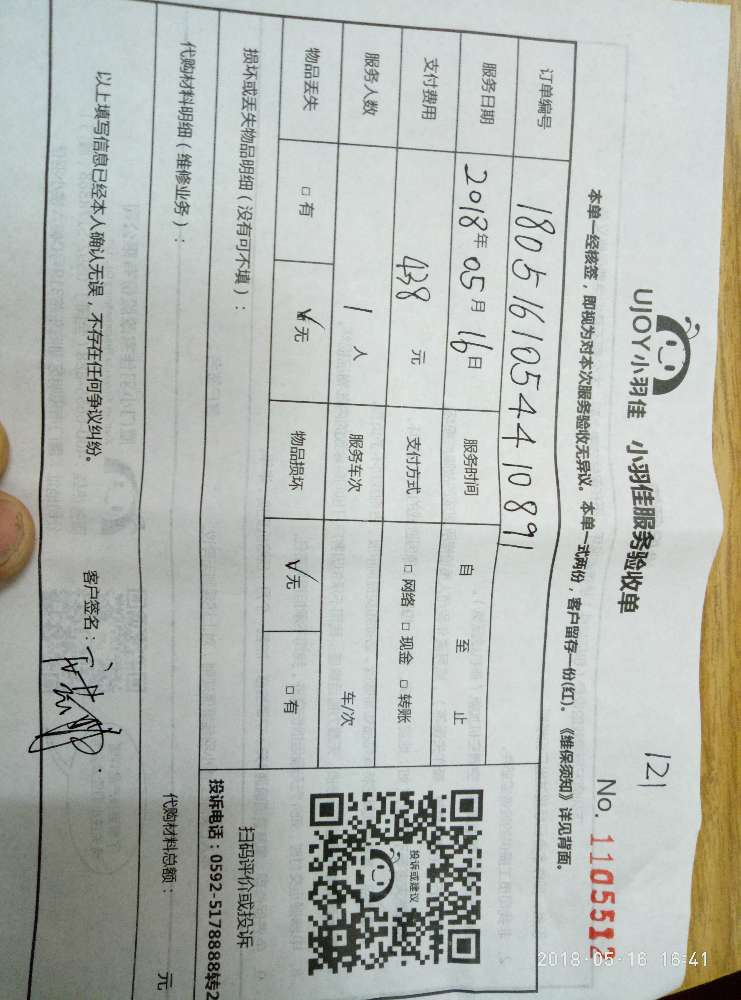 121
UJOY小羽佳 小羽佳服务验收单
No. 1105512
本单一经核签，即视为对本次服务验收无异议。本单一式两份，客户留存一份(红)。《维保须知》详见背面。
订单编号 180516105441 0891
服务日期 2018年 05月 16日 服务时间 自 至 止
支付费用 438 元 支付方式 □ 网络 □ 现金 □ 转账
服务人数 1 人 服务车次 车/次
物品丢失 □ 有 ☑ 无 物品损坏 ☑ 无 □ 有
投诉或建议
扫码评价或投诉
投诉电话：0592-5178888转2
损坏或丢失物品明细（没有可不填）：
代购材料明细（维修业务）： 代购材料总额： 元
以上填写信息已经本人确认无误，不存在任何争议纠纷。 客户签名：
2018-05-16 16:41